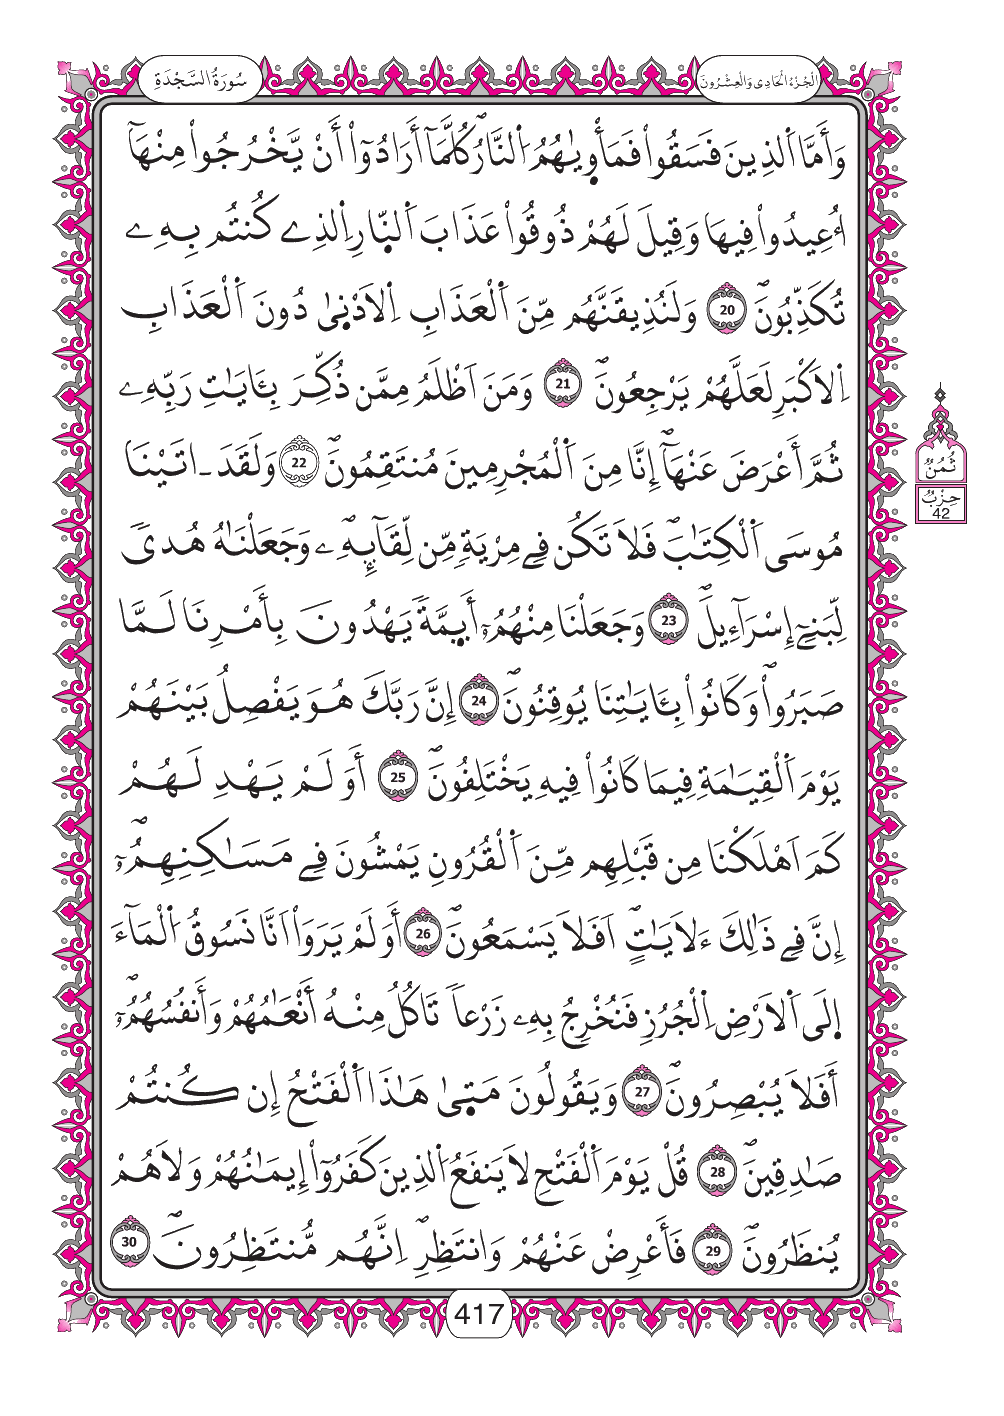 الجزء الحادي والعشرون
سورة السجدة
وَأَمَّا اَ۬لذِينَ فَسَقُواْ فَمَأْو۪يٰهُمُ اُ۬لنَّارُۖ كُلَّمَآ أَرَادُوٓاْ أَنْ يَّخْرُجُواْ مِنْهَآ
أُعِيدُواْ فِيهَا وَقِيلَ لَهُمْ ذُوقُواْ عَذَابَ اَ۬لنّ۪ارِ اِ۬لذِے كُنتُم بِهِۦ
تُكَذِّبُونَۖ 20 وَلَنُذِيقَنَّهُم مِّنَ اَ۬لْعَذَابِ اِ۬لَادْن۪يٰ دُونَ اَ۬لْعَذَابِ
اِ۬لَاكْبَرِ لَعَلَّهُمْ يَرْجِعُونَۖ 21 وَمَنَ اَظْلَمُ مِمَّن ذُكِّرَ بِـَٔايَٰتِ رَبِّهِۦ
ثُمَّ أَعْرَضَ عَنْهَآۖ إِنَّا مِنَ اَ۬لْمُجْرِمِينَ مُنتَقِمُونَۖ 22 وَلَقَدَ اٰتَيْنَا
مُوسَى اَ۬لْكِتَٰبَۖ فَلَا تَكُن فِے مِرْيَةٖ مِّن لِّقَآئِهِۦۖ وَجَعَلْنَٰهُ هُدىٗ
لِّبَنِےٓ إِسْرَآءِيلَۖ 23 وَجَعَلْنَا مِنْهُمُۥٓ أَئِمَّةٗ يَهْدُونَ بِأَمْرِنَا لَمَّا
صَبَرُواْۖ وَكَانُواْ بِـَٔايَٰتِنَا يُوقِنُونَۖ 24 إِنَّ رَبَّكَ هُوَ يَفْصِلُ بَيْنَهُمْ
يَوْمَ اَ۬لْقِيَٰمَةِ فِيمَا كَانُواْ فِيهِ يَخْتَلِفُونَۖ 25 أَوَلَمْ يَهْدِ لَهُمْ
كَمَ اَهْلَكْنَا مِن قَبْلِهِم مِّنَ اَ۬لْقُرُونِ يَمْشُونَ فِے مَسَٰكِنِهِمُۥٓۖ
إِنَّ فِے ذَٰلِكَ ءَلَايَٰتٍۖ اَفَلَا يَسْمَعُونَۖ 26 أَوَلَمْ يَرَوَاْ اَنَّا نَسُوقُ اُ۬لْمَآءَ
إِلَى اَ۬لَارْضِ اِ۬لْجُرُزِ فَنُخْرِجُ بِهِۦ زَرْعاٗ تَاكُلُ مِنْهُ أَنْعَٰمُهُمْ وَأَنفُسُهُمُۥٓۖ
أَفَلَا يُبْصِرُونَۖ 27 وَيَقُولُونَ مَت۪يٰ هَٰذَا اَ۬لْفَتْحُ إِن كُنتُمْ
صَٰدِقِينَۖ 28 قُلْ يَوْمَ اَ۬لْفَتْحِ لَا يَنفَعُ اُ۬لذِينَ كَفَرُوٓاْ إِيمَٰنُهُمْ وَلَا هُمْ
يُنظَرُونَۖ 29 فَأَعْرِضْ عَنْهُمْ وَانتَظِرِۖ اِنَّهُم مُّنتَظِرُونَۖ 30
ثمن
حزب
42
417